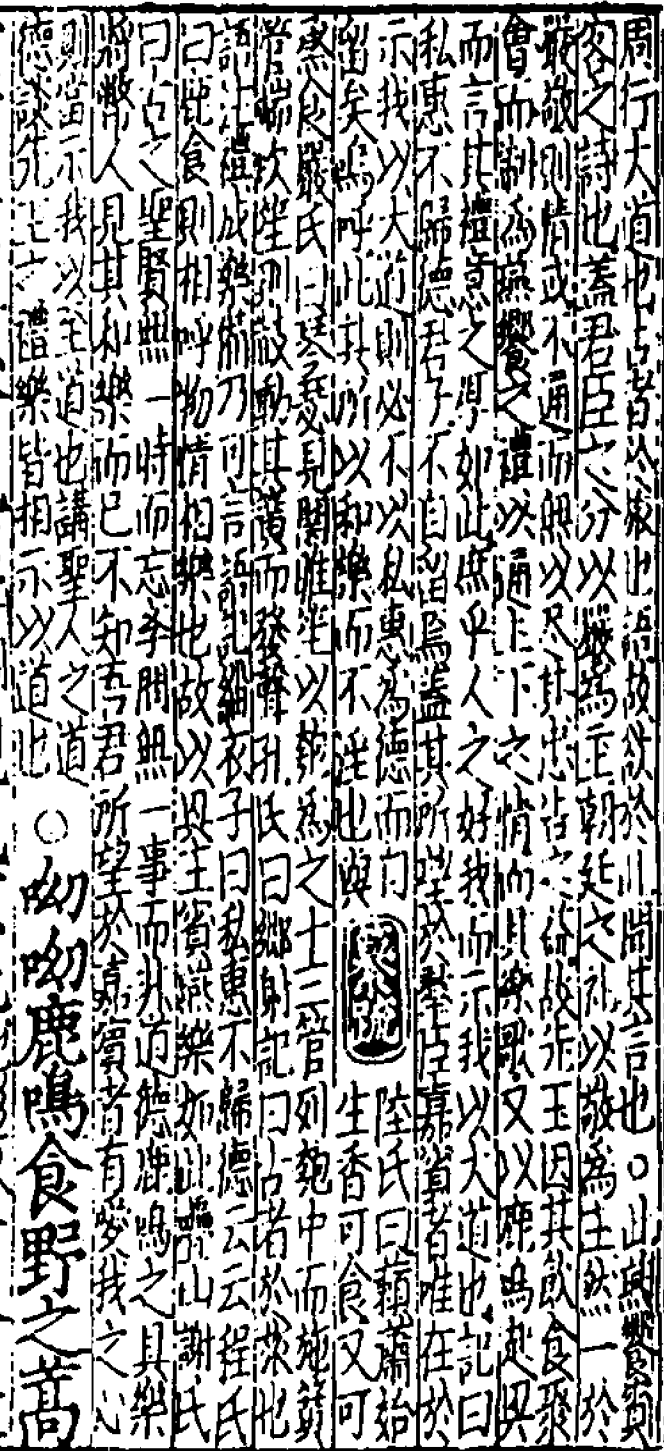 周行大道也古者於旅也語故欲於此聞其言也○此燕饗賓
客之詩也蓋君臣之分以嚴為主朝廷之礼以敬為主然一於
嚴敬則情或不通而無以尽其忠告之益故先王因其飲食聚
會而制為燕饗之禮以通上下之情而其樂歌又以鹿鳴起興
而言其禮意之厚如此庶乎人之好我而示我以大道也記曰
私惠不歸德君子不自留焉蓋其所望於群臣嘉賓者唯在於
示我以大道則必不以私惠為德而自
留矣嗚呼此其所以和樂而不淫也與
陸氏曰藾蕭始
生香可食又可
烝食嚴氏曰琴瑟見關雎笙以匏為之十三管列匏中而施簧
管端吹笙則鼓動其簧而發聲孔氏曰鄉射記曰古者於旅也
語注禮成樂備乃可言語記緇衣子曰私惠不歸德云云程氏
曰鹿食則相呼呦情相樂也故以興主賓燕樂如此疊山謝氏
曰古之聖賢無一時而忘学問無一事而非道德鹿鳴之具樂
將幣人見其和樂而已不知吾君所望於嘉賓者有愛我之心
則當示我以至道也講聖人之道
德談先王之禮樂皆相示以道也
○呦呦鹿鳴食野之蒿